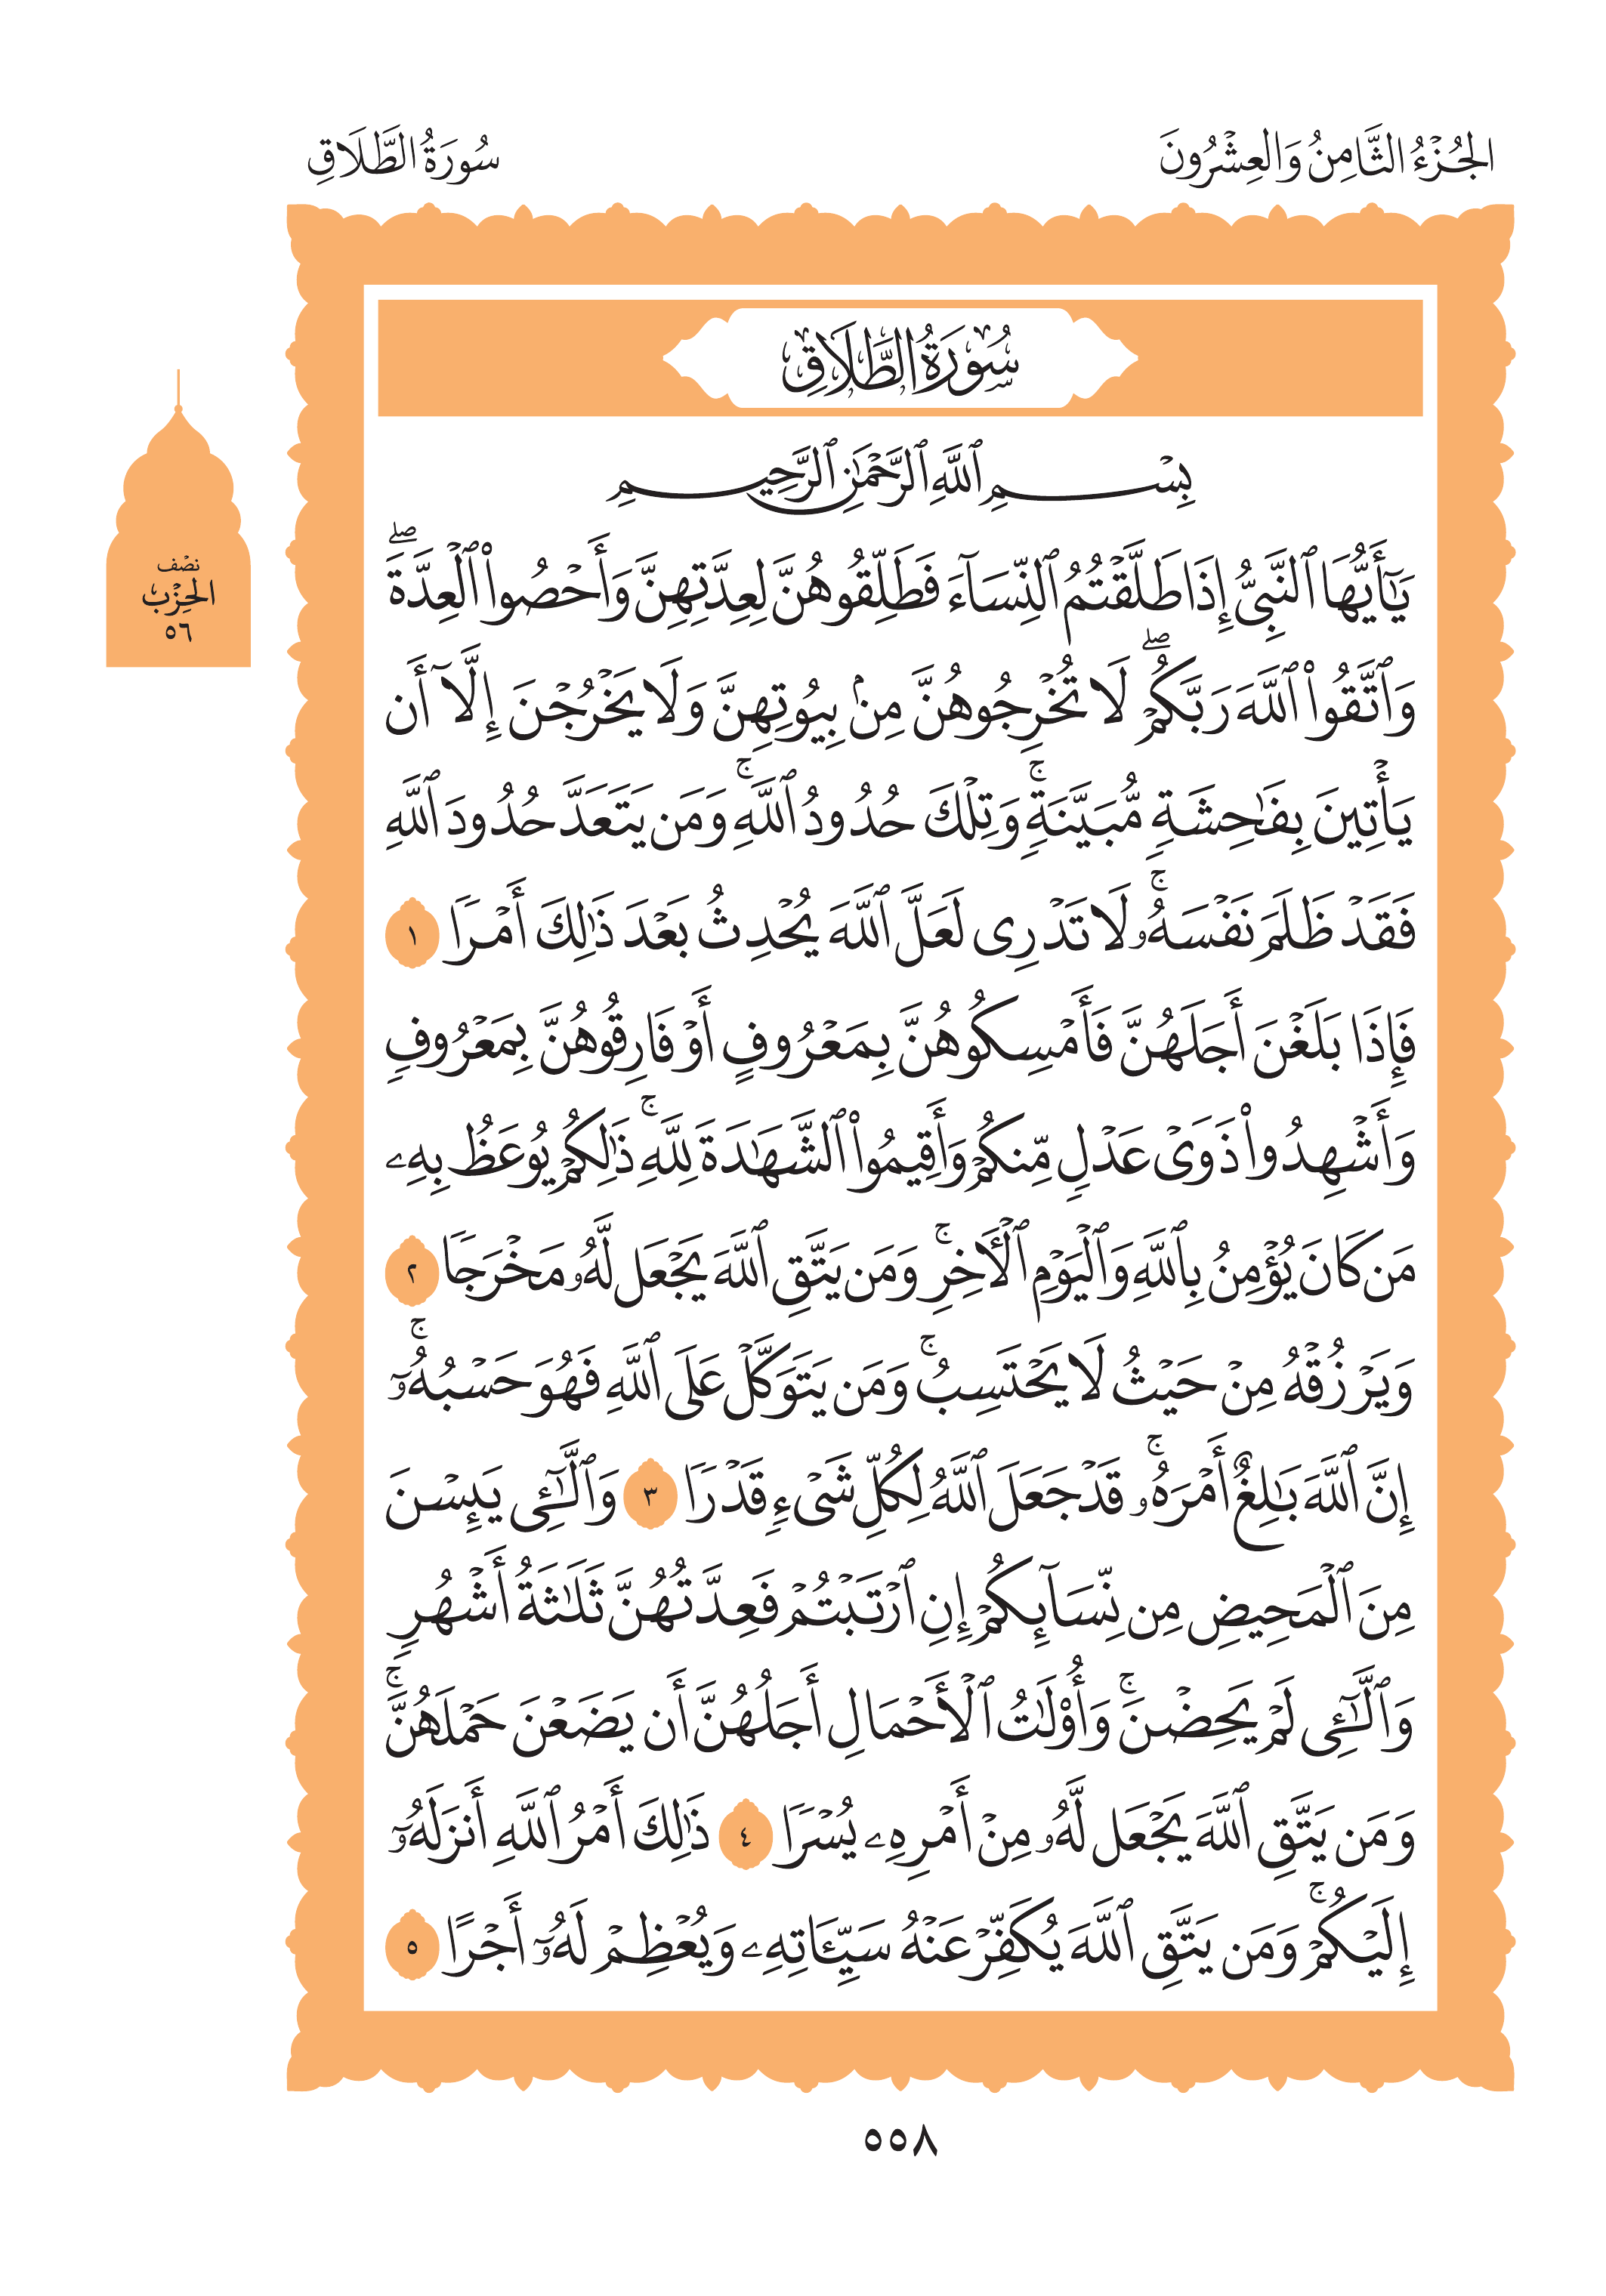 الجُزْءُ الثَّامِنُ وَالعِشْرُونَ
سُورَةُ الطَّلَاقِ
سُورَةُ الطَّلَاقِ
نصْف
الحِزْب
٥٦
بِسْمِ ٱللَّهِ ٱلرَّحْمَٰنِ ٱلرَّحِيمِ
يَٰٓأَيُّهَا ٱلنَّبِيُّ إِذَا طَلَّقْتُمُ ٱلنِّسَآءَ فَطَلِّقُوهُنَّ لِعِدَّتِهِنَّ وَأَحْصُوا۟ ٱلْعِدَّةَۖ
وَٱتَّقُوا۟ ٱللَّهَ رَبَّكُمْۖ لَا تُخْرِجُوهُنَّ مِنۢ بِيُوتِهِنَّ وَلَا يَخْرُجْنَ إِلَّآ أَن
يَأْتِينَ بِفَٰحِشَةٍ مُّبَيَّنَةٍۚ وَتِلْكَ حُدُودُ ٱللَّهِۚ وَمَن يَتَعَدَّ حُدُودَ ٱللَّهِ
فَقَدْ ظَلَمَ نَفْسَهُۥۚ لَا تَدْرِى لَعَلَّ ٱللَّهَ يُحْدِثُ بَعْدَ ذَٰلِكَ أَمْرًا ١
فَإِذَا بَلَغْنَ أَجَلَهُنَّ فَأَمْسِكُوهُنَّ بِمَعْرُوفٍ أَوْ فَارِقُوهُنَّ بِمَعْرُوفٍ
وَأَشْهِدُوا۟ ذَوَىْ عَدْلٍ مِّنكُمْ وَأَقِيمُوا۟ ٱلشَّهَٰدَةَ لِلَّهِۚ ذَٰلِكُمْ يُوعَظُ بِهِۦ
مَن كَانَ يُؤْمِنُ بِٱللَّهِ وَٱلْيَوْمِ ٱلْءَاخِرِۚ وَمَن يَتَّقِ ٱللَّهَ يَجْعَل لَّهُۥ مَخْرَجًا ٢
وَيَرْزُقْهُ مِنْ حَيْثُ لَا يَحْتَسِبُۚ وَمَن يَتَوَكَّلْ عَلَى ٱللَّهِ فَهُوَ حَسْبُهُۥٓۚ
إِنَّ ٱللَّهَ بَٰلِغٌ أَمْرَهُۥۚ قَدْ جَعَلَ ٱللَّهُ لِكُلِّ شَىْءٍ قَدْرًا ٣ وَٱلَّٰٓـِٔى يَئِسْنَ
مِنَ ٱلْمَحِيضِ مِن نِّسَآئِكُمْ إِنِ ٱرْتَبْتُمْ فَعِدَّتُهُنَّ ثَلَٰثَةُ أَشْهُرٍ
وَٱلَّٰٓـِٔى لَمْ يَحِضْنَۚ وَأُو۟لَٰتُ ٱلْأَحْمَالِ أَجَلُهُنَّ أَن يَضَعْنَ حَمْلَهُنَّۚ
وَمَن يَتَّقِ ٱللَّهَ يَجْعَل لَّهُۥ مِنْ أَمْرِهِۦ يُسْرًا ٤ ذَٰلِكَ أَمْرُ ٱللَّهِ أَنزَلَهُۥٓ
إِلَيْكُمْۚ وَمَن يَتَّقِ ٱللَّهَ يُكَفِّرْ عَنْهُ سَيِّـَٔاتِهِۦ وَيُعْظِمْ لَهُۥٓ أَجْرًا ٥
٥٥٨